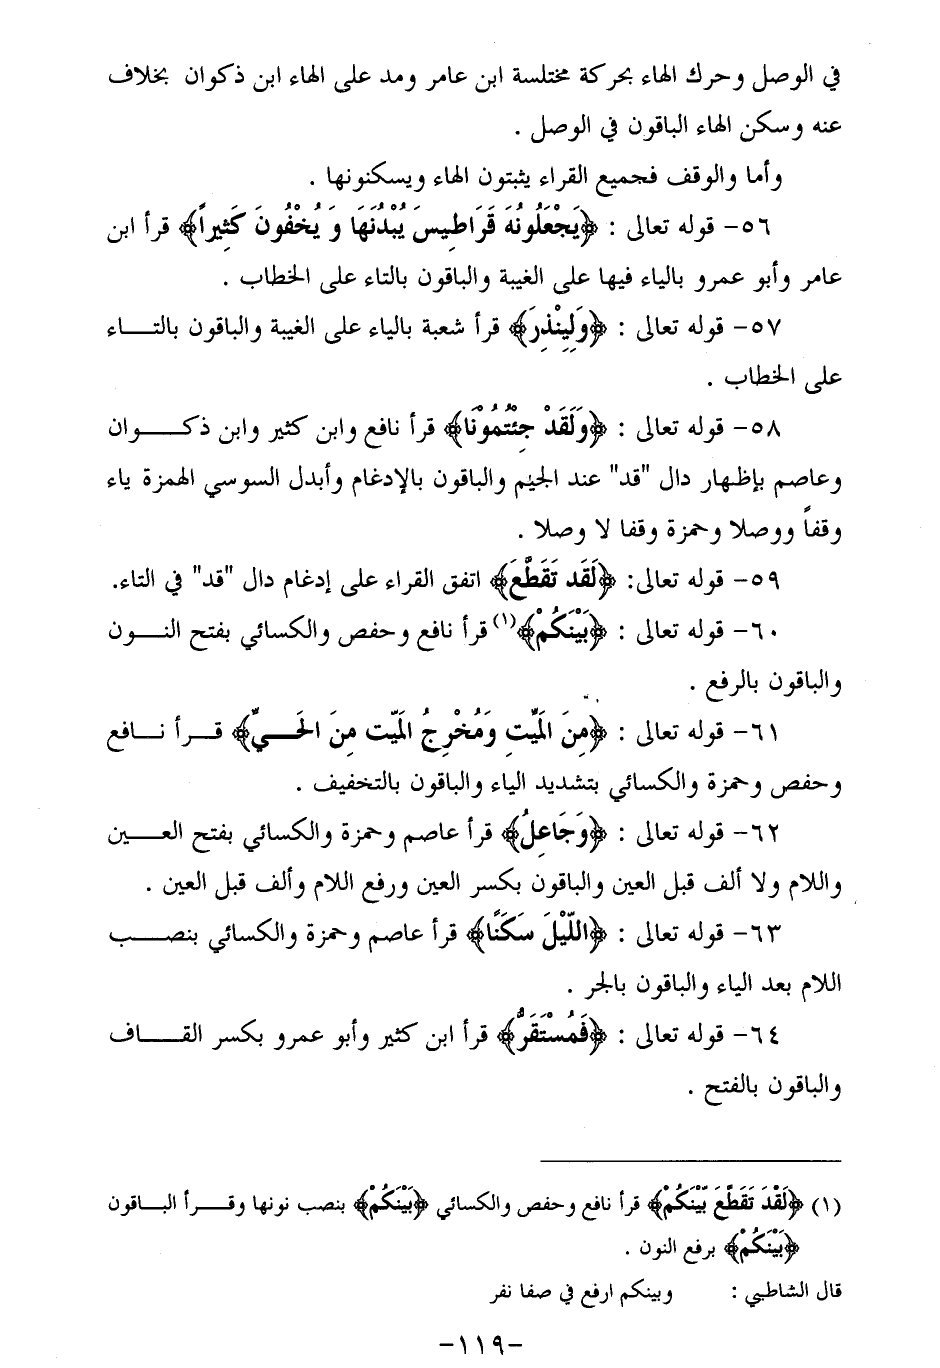 في الوصل وحرك الهاء بحركة مختلسة ابن عامر ومد على الهاء ابن ذكوان بخلاف
عنه وسكن الهاء الباقون في الوصل .
وأما والوقف فجميع القراء يثبتون الهاء ويسكنونها .
٥٦- قوله تعالى : ﴿يَجْعَلُونُهَ قَرَاطِيسَ يُبْدُنَهَا وَ يُخْفُونَ كَثِيراً﴾ قرأ ابن
عامر وأبو عمرو بالياء فيها على الغيبة والباقون بالتاء على الخطاب .
٥٧- قوله تعالى : ﴿وَلِيِنْذِرَ﴾ قرأ شعبة بالياء على الغيبة والباقون بالتـــاء
على الخطاب .
٥٨- قوله تعالى : ﴿وَلَقَدْ جِئْتُمُوْنَا﴾ قرأ نافع وابن كثير وابن ذكـــوان
وعاصم بإظهار دال "قد" عند الجيم والباقون بالإدغام وأبدل السوسي الهمزة ياء
وقفاً ووصلا وحمزة وقفا لا وصلا .
٥٩- قوله تعالى: ﴿لَقَد تَقَطَّعَ﴾ اتفق القراء على إدغام دال "قد" في التاء.
٦٠- قوله تعالى : ﴿بَيْنَكُمْ﴾(١) قرأ نافع وحفص والكسائي بفتح النـــون
والباقون بالرفع .
٦١- قوله تعالى : ﴿مِنَ الَميِّتِ وَمُخْرِجُ الَميِّت مِنَ الحَـــيِّ﴾ قـــرأ نـــافع
وحفص وحمزة والكسائي بتشديد الياء والباقون بالتخفيف .
٦٢- قوله تعالى : ﴿وَجَاعِلُ﴾ قرأ عاصم وحمزة والكسائي بفتح العـــين
واللام ولا ألف قبل العين والباقون بكسر العين ورفع اللام وألف قبل العين .
٦٣- قوله تعالى : ﴿اللّيْلَ سَكَنًا﴾ قرأ عاصم وحمزة والكسائي بنصـــب
اللام بعد الياء والباقون بالجر .
٦٤- قوله تعالى : ﴿فَمُسْتَقَرٌّ﴾ قرأ ابن كثير وأبو عمرو بكسر القـــاف
والباقون بالفتح .
(١) ﴿لَقْدَ تَقَطَّعَ بَيْنَكُمْ﴾ قرأ نافع وحفص والكسائي ﴿بَيْنَكُمْ﴾ بنصب نونها وقـــرأ البـاقون
﴿بَيْنَكُمْ﴾ برفع النون .
قال الشاطبي : وبينكم ارفع في صفا نفر
-١١٩-